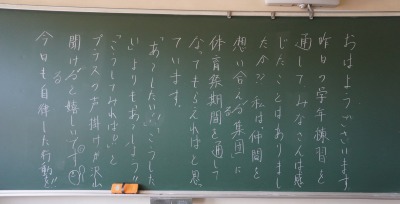 おはようございます
昨日の学年練習を
通してみなさんは感
じたことはありまし
たか？私は仲間を
想い合える集団に
体育祭期間を通して
なってもらえればと思
ています。
「あしたい」「こうした
い」よりもあしよう」
「こうしてみれば？」と
プラスの声掛けが沢山
聞けると嬉しいです
今日も自律した行動を